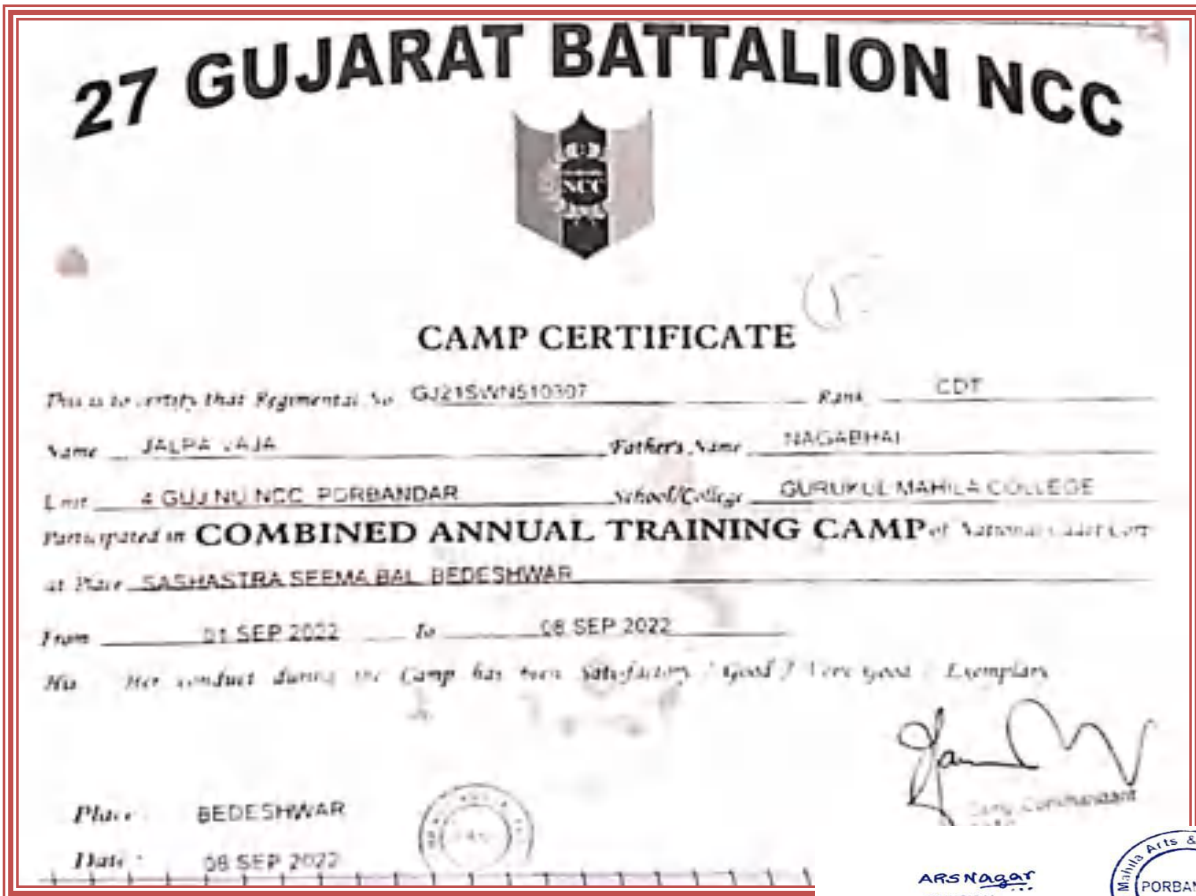 27 GUJARAT BATTALION NCC
NCC
CAMP CERTIFICATE
This is to certify that Regimental No GJ21SWN510307 Rank CDT
Name JALPA VAJA Father's Name NAGABHAI
Unit 4 GUJ NU NCC PORBANDAR School/College GURUKUL MAHILA COLLEGE
Participated in COMBINED ANNUAL TRAINING CAMP of National Cadet Corp
at Place SASHASTRA SEEMA BAL BEDESHWAR
From 01 SEP 2022 To 08 SEP 2022
His Her conduct during the Camp has been Satisfactory / Good / Very Good / Exemplary
Camp Commandant
Place : BEDESHWAR
Date : 08 SEP 2022
ARSNagar
Mahila Arts &